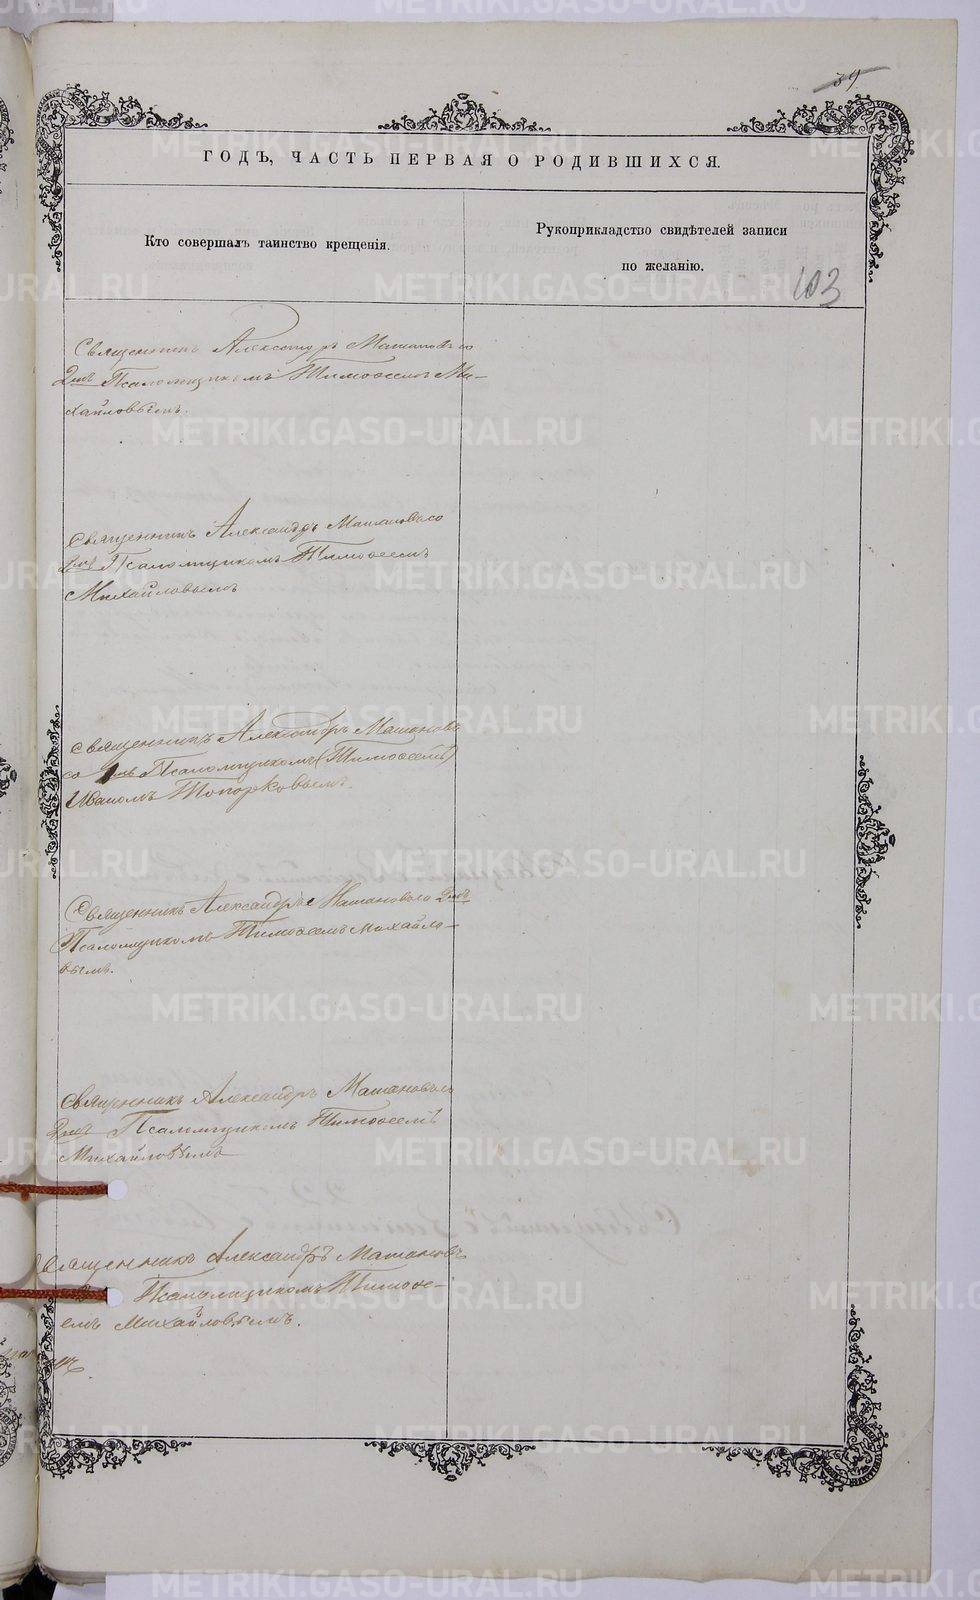 39
ГОДЪ, ЧАСТЬ ПЕРВАЯ О РОДИВШИХСЯ.
Кто совершалъ таинство крещенія.
Рукоприкладство свидѣтелей записи
по желанію.
103
Священникъ Александръ Матановъ со
Псаломщикомъ Тимоѳеемъ Ми-
хайловымъ.
Священникъ Александръ Матановъ со
Псаломщикомъ Тимоѳеемъ
Михайловымъ
Священникъ Александръ Матановъ
со Псаломщикомъ (Тимоѳеемъ)
Иваномъ Топорковымъ.
Священникъ Александръ Матановъ со
Псаломщикомъ Тимоѳеемъ Михайло-
вымъ.
Священникъ Александръ Матановъ со
Псаломщикомъ Тимоѳеемъ
Михайловымъ
Священникъ Александръ Матановъ
Псаломщикомъ Тимоѳе-
емъ Михайловымъ.
METRIKI.GASO-URAL.RU